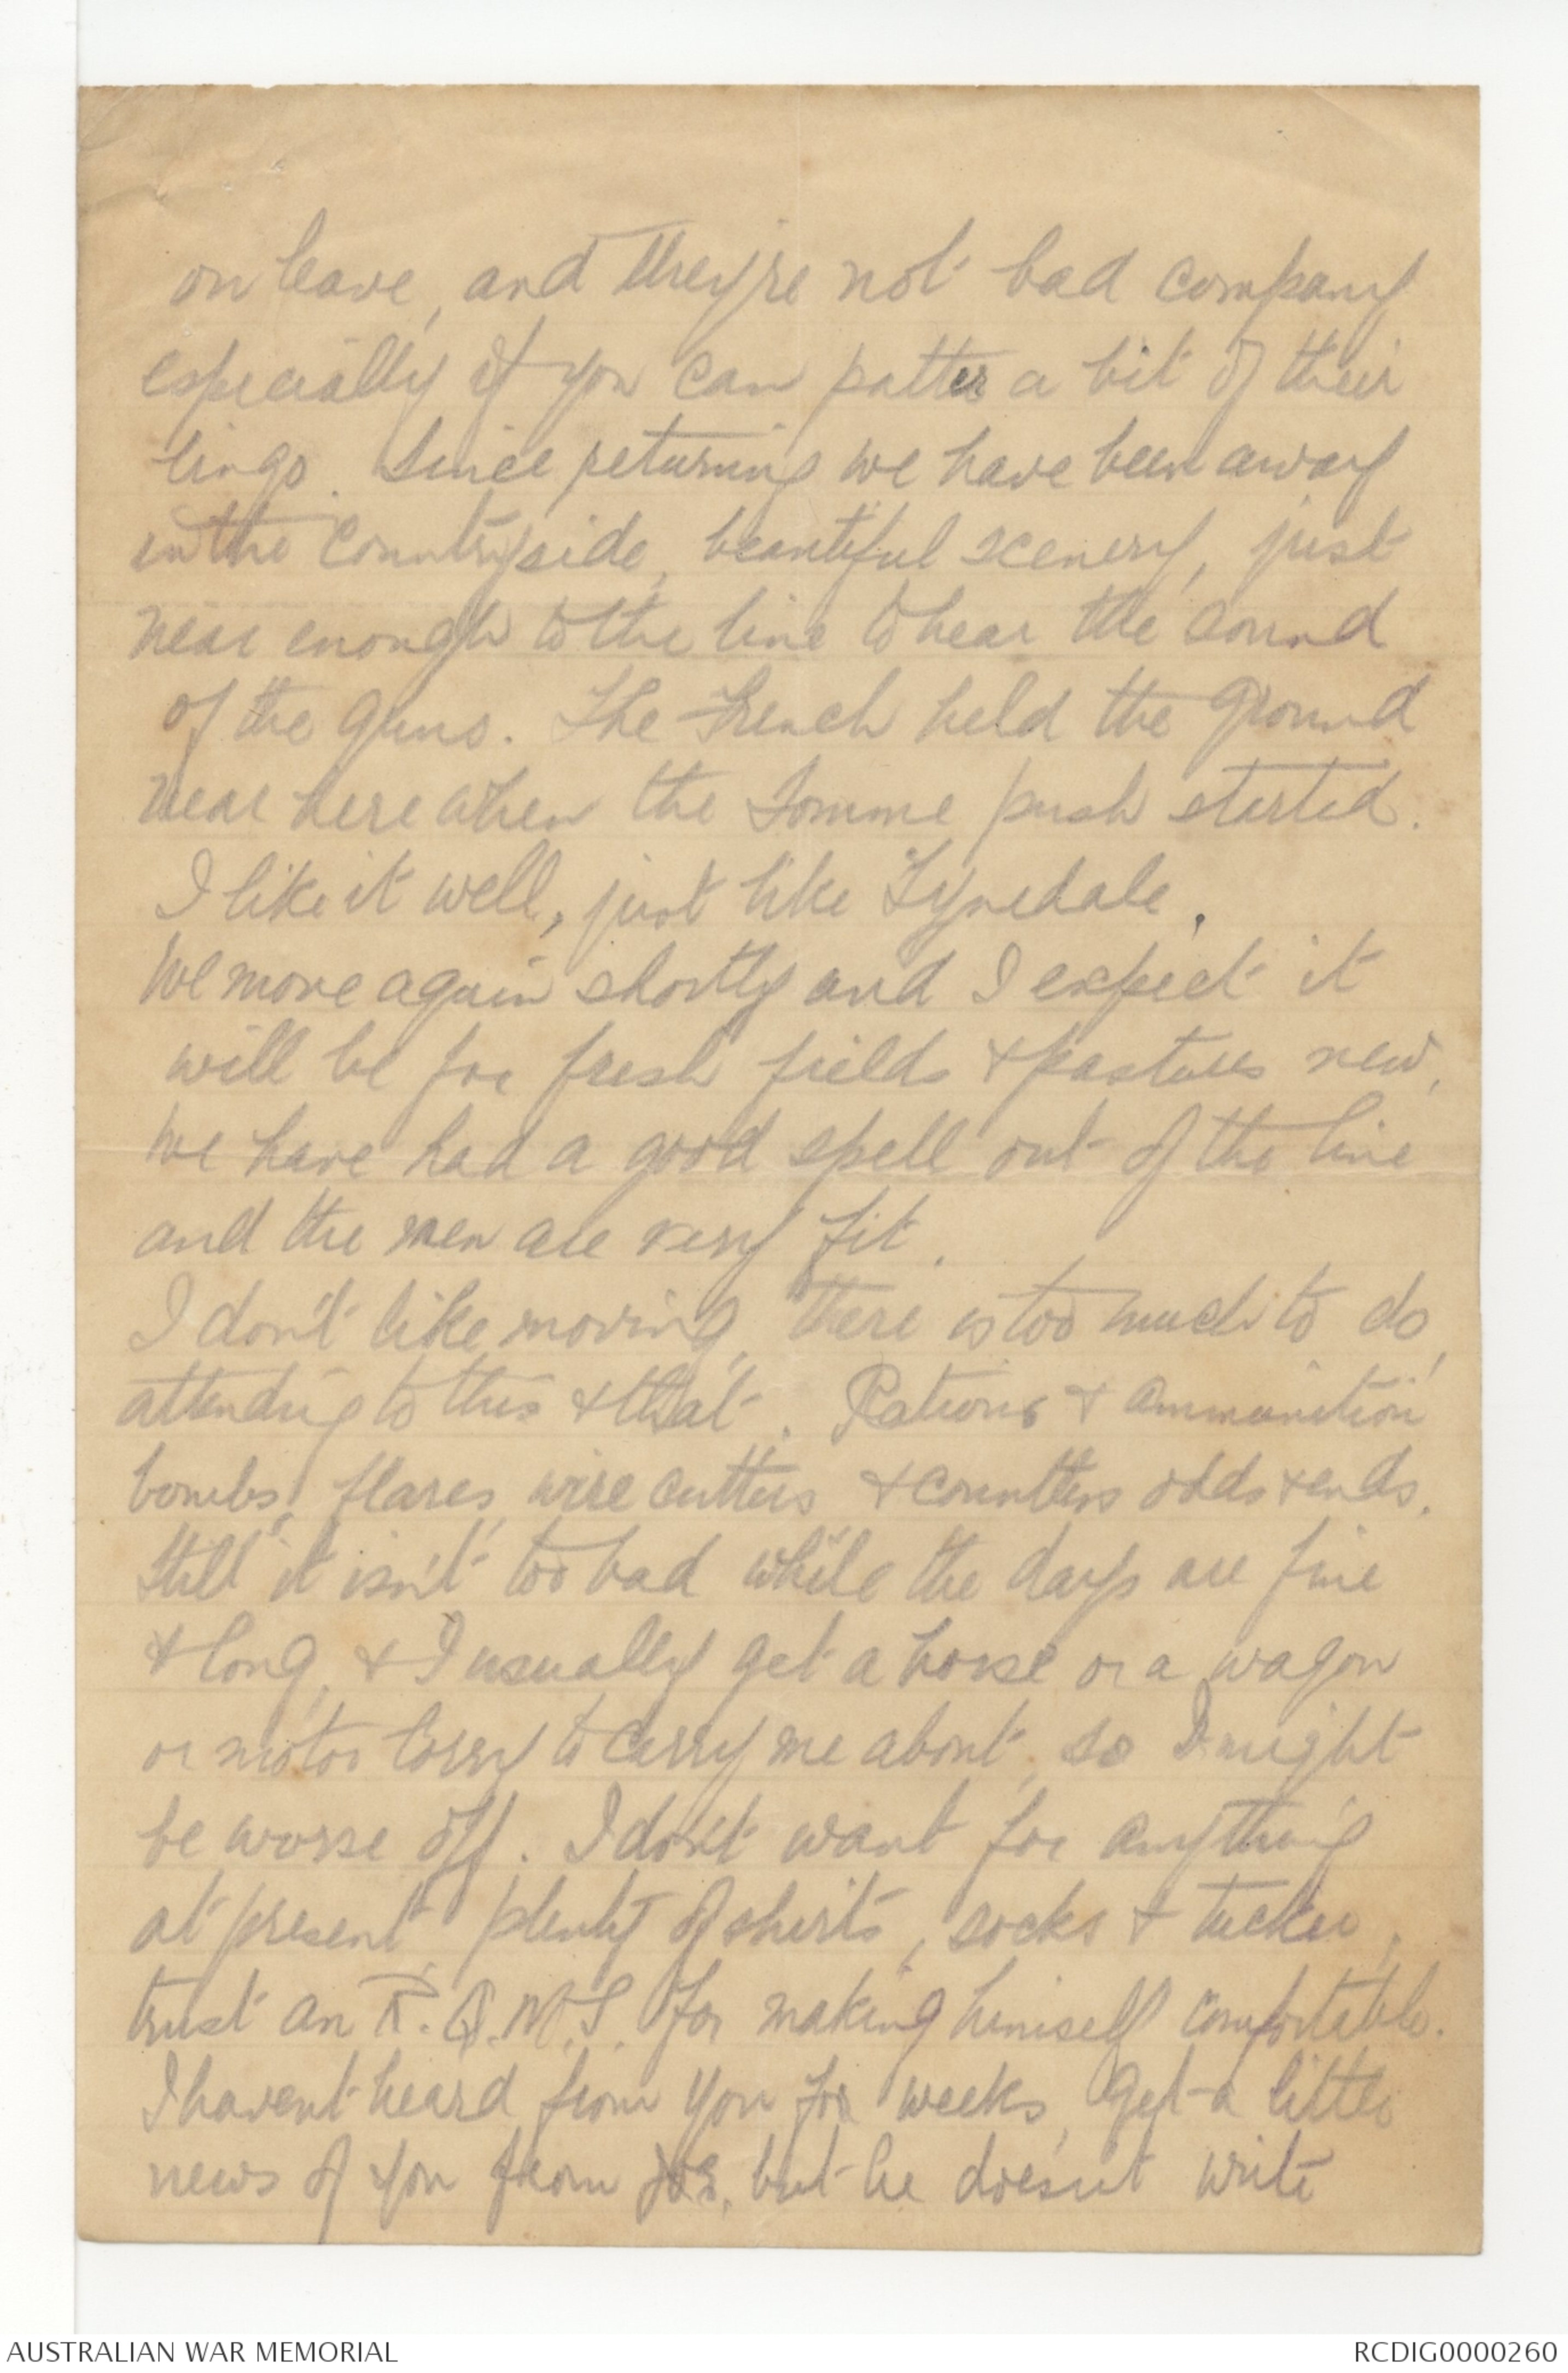 on leave, and they're not bad company
especially if you can patter a bit of their
lingo. Since returning we have been away
in the countryside, beautiful scenery, just
near enough to the line to hear the sound
of the guns. The French held the ground
near here when the Somme push started.
I like it well, just like Tynedale.
We move again shortly and I expect it
will be for fresh fields & pastures new,
We have had a good spell out of the line
and the men are very fit.
I don't like moving, there is too much to do,
attending to this & that. Rations & ammunition
bombs, flares, wire cutters & countless odds & ends.
Still it isn't too bad while the days are fine
& long, & I usually get a horse or a wagon
or motor lorry to carry me about, so I might
be worse off. I don't want for anything
at present, plenty of shirts, socks & tucker,
trust an R.Q.M.S. for making himself comfortable.
I havent heard from you for weeks, get a little
news of you from Joe, but he doesn't write
AUSTRALIAN WAR MEMORIAL
RCDIG0000260